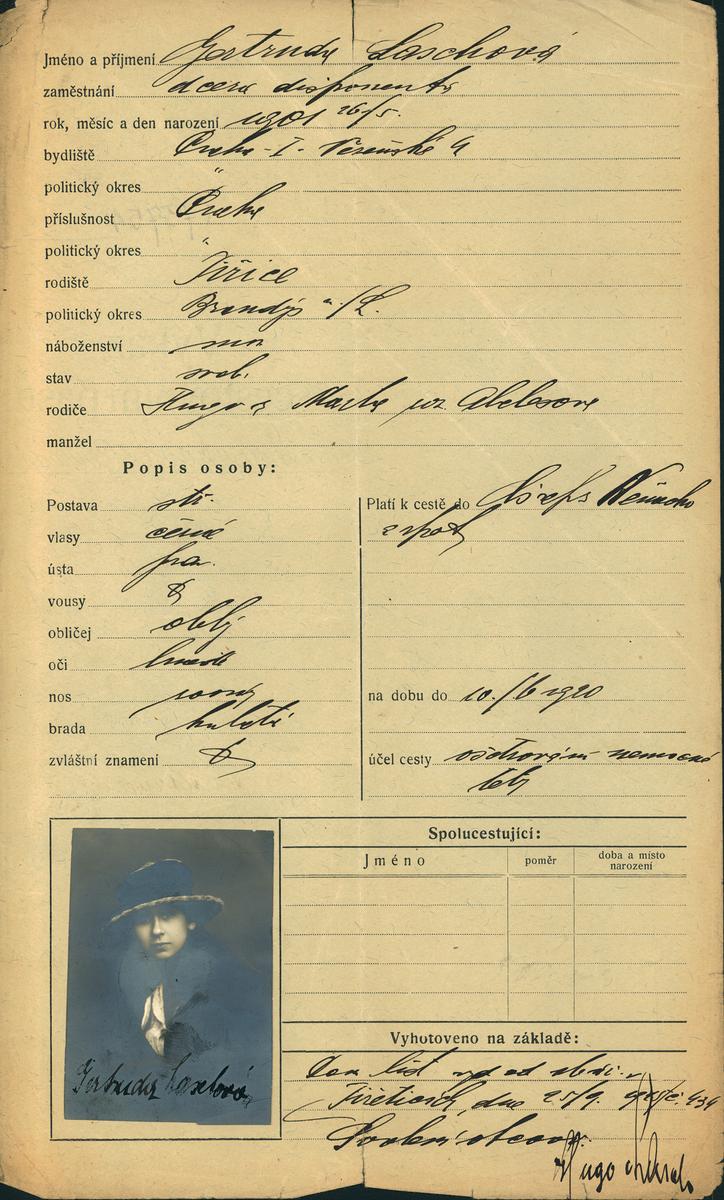 Jméno a příjmení Gertruda Laschová
zaměstnání dcera disponenta
rok, měsíc a den narození 1901 26/5.
bydliště Praha - I. Vězeňská 4
politický okres "
příslušnost Praha
politický okres "
rodiště Jiřice
politický okres Brandýs n./L.
náboženství moz
stav svob.
rodiče Hugo a Marta roz. Abelesova
manžel
Popis osoby:
Postava stř.
vlasy černé
ústa pra.
vousy
obličej oblý
oči hnědé
nos rovný
brada kulatá
zvláštní znamení
Platí k cestě do Německo
a zpět
na dobu do 10./6 1920
účel cesty ošetřování nemocné
tety
Spolucestující:
Jméno poměr doba a místo
narození
Gertruda Laschová
Vyhotoveno na základě:
Dom. list vyd. od
dne 25/9. 434
Svolení otcovo:
Hugo